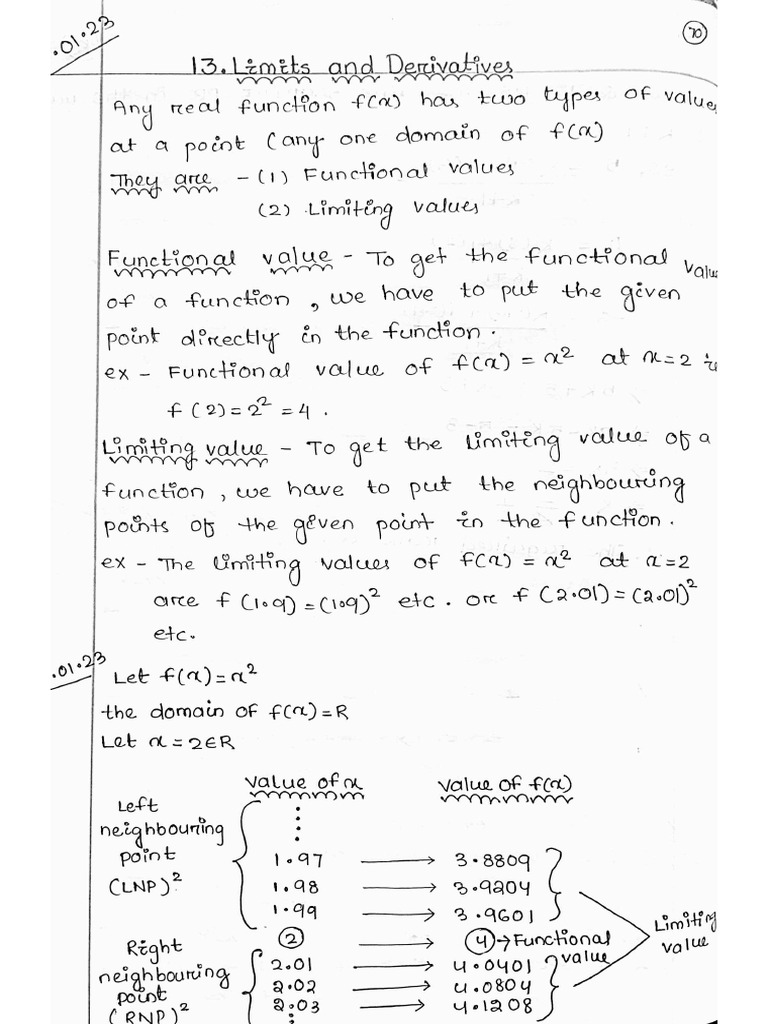 .01.23
70
13. Limits and Derivatives
Any real function f(x) has two types of value
at a point (any one domain of f(x)
They are - (1) Functional values
(2) Limiting values
Functional value - To get the functional value
of a function, we have to put the given
point directly in the function.
ex - Functional value of f(x) = x² at x = 2 is
f(2) = 2² = 4.
Limiting value - To get the limiting value of a
function, we have to put the neighbouring
points of the given point in the function.
ex - The limiting values of f(x) = x² at x = 2
are f(1.9) = (1.9)² etc. or f(2.01) = (2.01)²
etc.
.01.23
Let f(x) = x²
the domain of f(x) = R
Let x = 2∈R
value of x value of f(x)
Left
neighbouring
point
(LNP)²
1.97 → 3.8809
1.98 → 3.9204
1.99 → 3.9601
2 → 4 → Functional value
Limiting value
Right
neighbouring
point
(RNP)²
2.01 → 4.0401
2.02 → 4.0804
2.03 → 4.1208